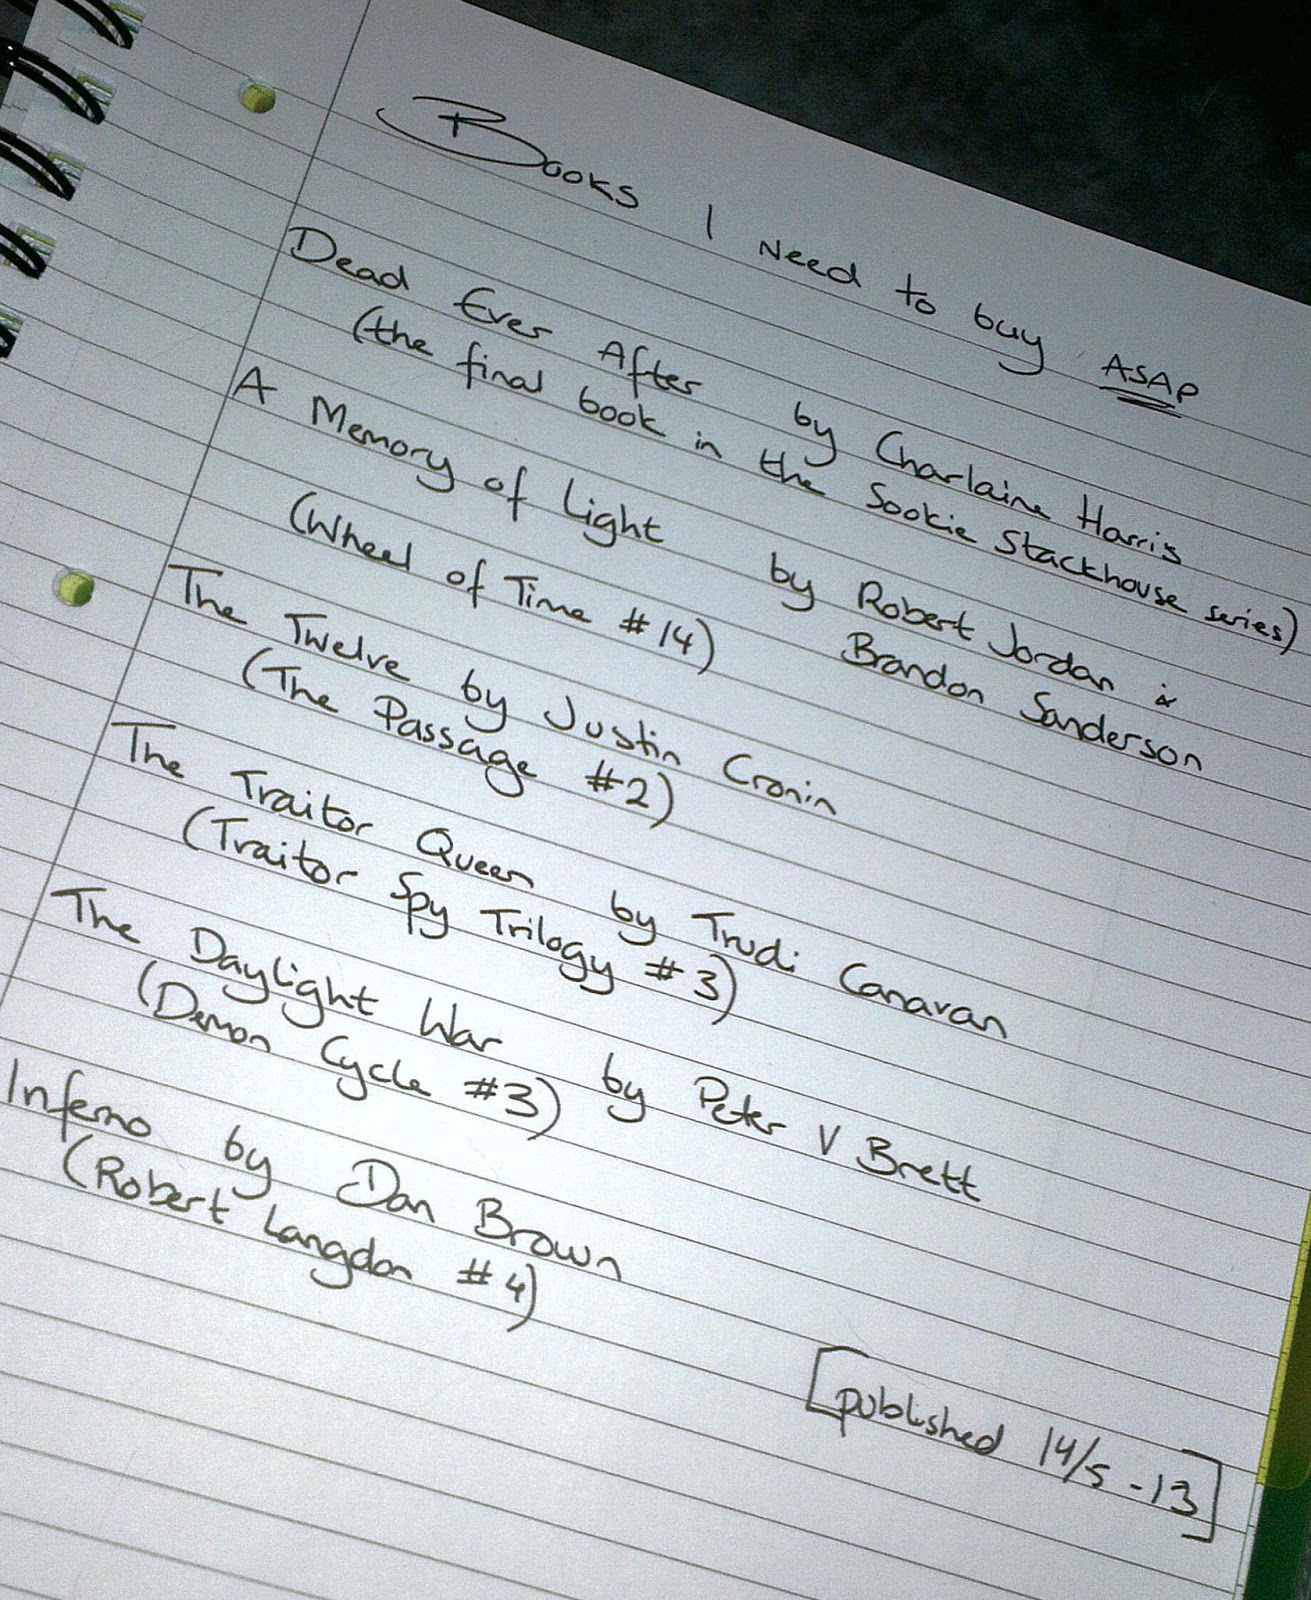 Books I Need to buy ASAP
Dead Ever After by Charlaine Harris
(the final book in the Sookie Stackhouse series)
A Memory of Light by Robert Jordan &
Brandon Sanderson
(Wheel of Time #14)
The Twelve by Justin Cronin
(The Passage #2)
The Traitor Queen by Trudi Canavan
(Traitor Spy Trilogy #3)
The Daylight War by Peter V Brett
(Demon Cycle #3)
Inferno by Dan Brown
(Robert Langdon #4)
[published 14/5-13]